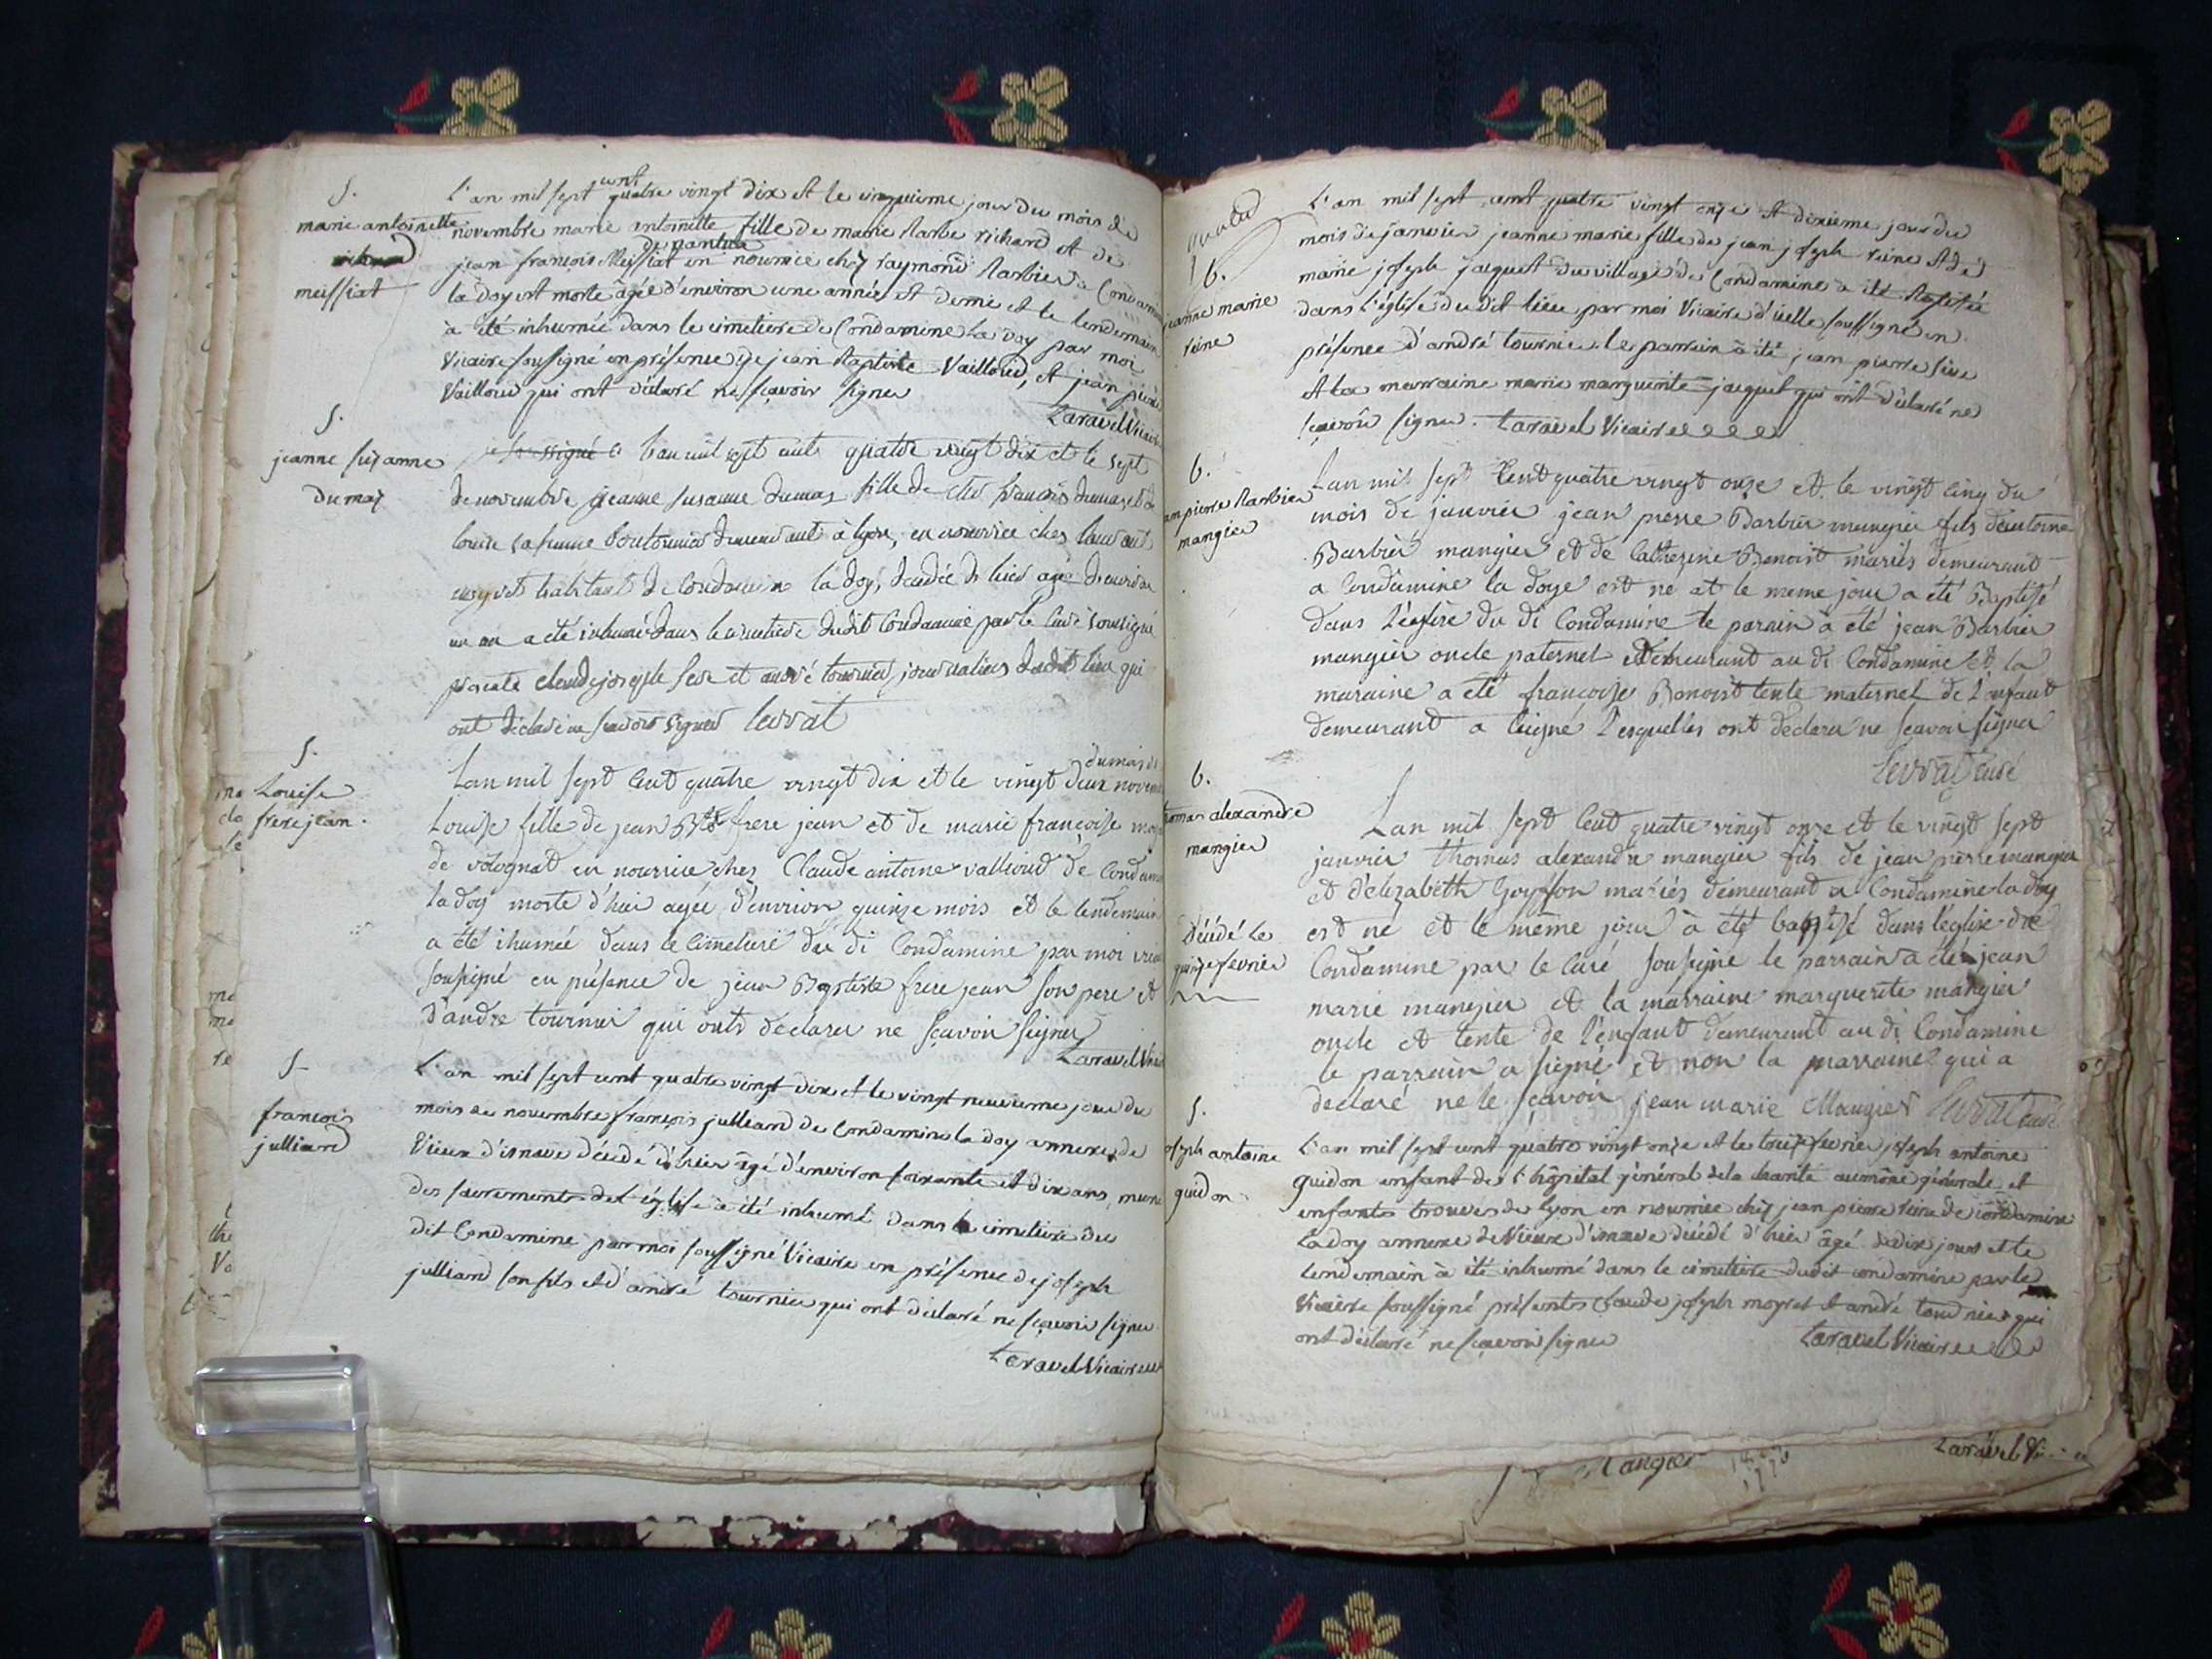 S.
marie antoinette
meissiat
L'an mil sept cent quatre vingt dix et le cinquieme jour du mois de
novembre marie antoinette fille de marie Barbe richard et de
jean françois Meissiat de nantua en nourrice chez raymond Barbier à Condamine
la doy est morte âgée d'environ une année et demie et le lendemain
à été inhumée dans le cimetiere de Condamine La doy par moi
Vicaire soussigné en présence de jean Baptiste Vailloud, et jean pierre
Vailloud qui ont déclaré ne sçavoir signer
Laravel Vicaire
S.
jeanne suzanne
dumaz
L'an mil sept cent quatre vingt dix et le sept
de novembre jeanne susanne dumas fille de françois dumas et de
demeurant à lyon, en nourrice chés
habitant de Condamine la doy, décédée de hier agée d'environ
un an a été inhumé dans le cimetiere dudit Condamine par le Curé soussigné
présents claude joseph seve et andré tournier journaliers dudit lieu qui
ont déclaré ne scavoir signer levrat
S.
Louise
frere jean.
Lan mil sept Cent quatre vingt dix et le vingt deux du mois de novembre
Louise fille de jean Bte frere jean et de marie françoise
de volognat en nourrice ches Claude antoine vallioud de Condamine
la doy morte d'hier agée d'environ quinze mois et le lendemain
a été ihumée dans le Cimetiere du di Condamine par moi vicaire
sousigné en présence de jean Baptiste frere jean son pere et
d'andre tournier qui onts declarer ne sçavoir signer
Laravel Vicaire
S.
françois
julliard
L'an mil sept cent quatre vingt dix et le vingt neuvieme jour du
mois de novembre françois julliard de Condamine la doy annexe de
Vieux d'isnave décédé d'hier âgé d'environ soixante et dix ans, munie
des sacrements de l'église à été inhumé dans le cimetiere du
dit Condamine par moi soussigné Vicaire en présence de joseph
julliard son fils et d'andré tournier qui ont déclaré ne sçavoir signer.
Laravel Vicaire
b.
jeanne marie
reine
L'an mil sept cent quatre vingt onze et dixieme jour du
mois de janvier jeanne marie fille de jean joseph reine et de
marie joseph jacquet du village de Condamine à été Baptisée
dans l'église du dit lieu par moi Vicaire d'icelle soussigné en
présence d'andré tournier. le parrain à été jean pierre
et la marraine marie marguerite jacquet qui ont déclaré ne
sçavoir signer. Laravel Vicaire
b.
jean pierre Barbier
mangier
Lan mil sept Cent quatre vingt onze et le vingt cinq du
mois de janvier jean pierre Barbier mangier fils d'entoine
Barbier mangier et de Catherine Benoist mariés demeurant
a Condamine la doye est né et le meme jour a été Baptisé
dans l'église du di Condamine le parain à été jean Barbier
mangier oncle paternel demeurant au di Condamine et la
maraine a été françoise Benoist tente maternel de l'enfant
demeurant a Leigné lesquelles ont declarer ne scavoir signer
levrat curé
b.
thomas alexandre
mangier
décédé le
quinze fevrier
Lan mil sept Cent quatre vingt onze et le vingt sept
janvier thomas alexandre mangier fils de jean pierre mangier
et d'elizabeth Goyffon mariés demeurant a Condamine la doy
est né et le même jour à été baptisé dans l'église de
Condamine par le Curé sousigne le parrain a été jean
marie mangier et la marraine marguerite mangier
oncle et tente de l'enfant demeurant au di Condamine
le parrain a signé et non la marraine qui a
déclaré ne le sçavoir jean marie Mangier levrat curé
S.
joseph antoine
guidon
L'an mil sept cent quatre vingt onze et le treize fevrier joseph antoine
guidon enfant de l'hôpital général de la charité aumône générale et
enfants trouvés de lyon en nourrice chez jean pierre reine de condamine
La doy annexe de Vieux d'isnave décédé d'hier âgé de dix jours et le
lendemain à été inhumé dans le cimetiere dudit condamine par le
Vicaire soussigné présents claude joseph moyret et andré tournier qui
ont déclaré ne sçavoir signer Laravel Vicaire
Mangier
Laravel Vi